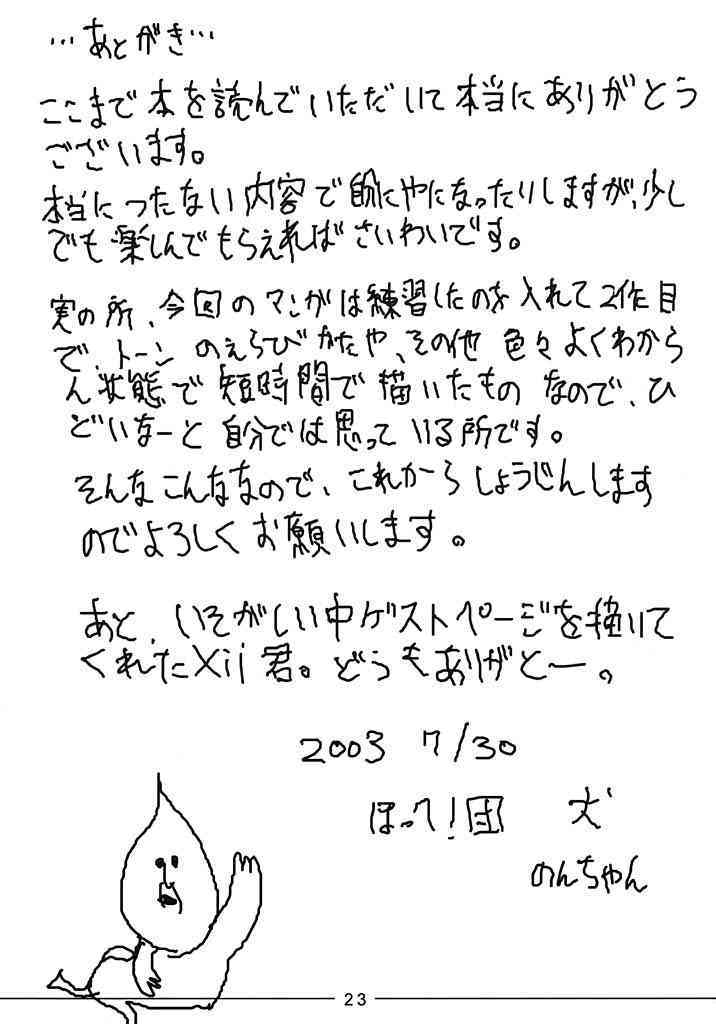 …あとがき…
ここまで本を読んでいただいて本当にありがとう
ございます。
本当につたない内容で
やになったりしますが、少し
でも楽しんでもらえればさいわいです。
実の所、今回のマンガは練習したのを入れて2作目
で、トーンのえらびかたや、その他色々よくわから
ん状態で短時間で描いたものなので、ひ
どいなーと自分では思っている所です。
そんなこんななので、これからしょうじんします
のでよろしくお願いします。
あと、いそがしい中ゲストページを描いて
くれたXii君。どうもありがとー。
2003 7/30
ほって!団 犬
のんちゃん
23